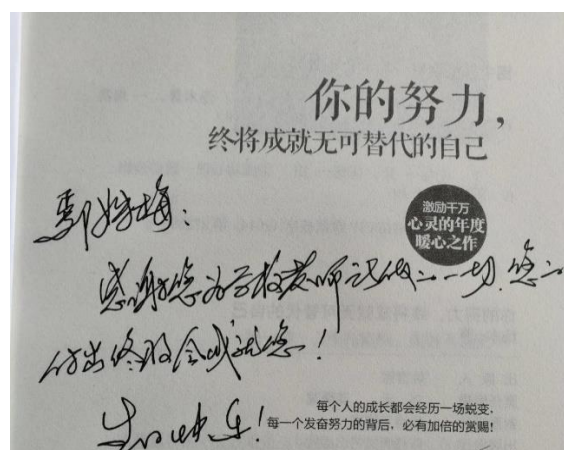 你的努力，
终将成就无可替代的自己
激励千万
心灵的年度
暖心之作
感谢您为学校老师所做的一切.您的
付出终将会成就您！
生日快乐！
每个人的成长都会经历一场蜕变，
每一个发奋努力的背后，必有加倍的赏赐！